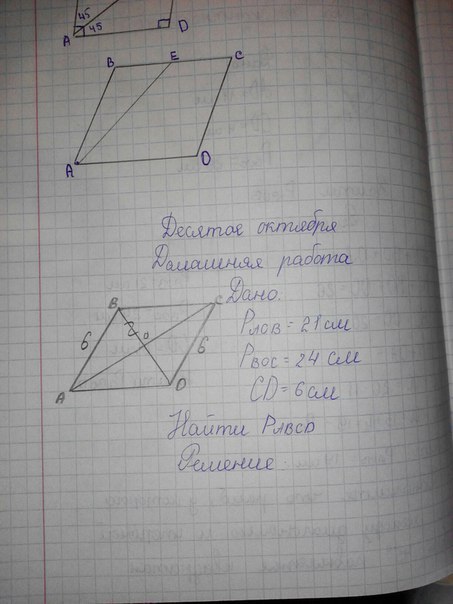 45
45
A
D
B
E
C
A
D
Десятое октября
Домашняя работа
B
C
Дано:
6
O
PAOB = 21 см
6
PBOC = 24 см
A
D
CD = 6 см
Найти PABCD
Решение: